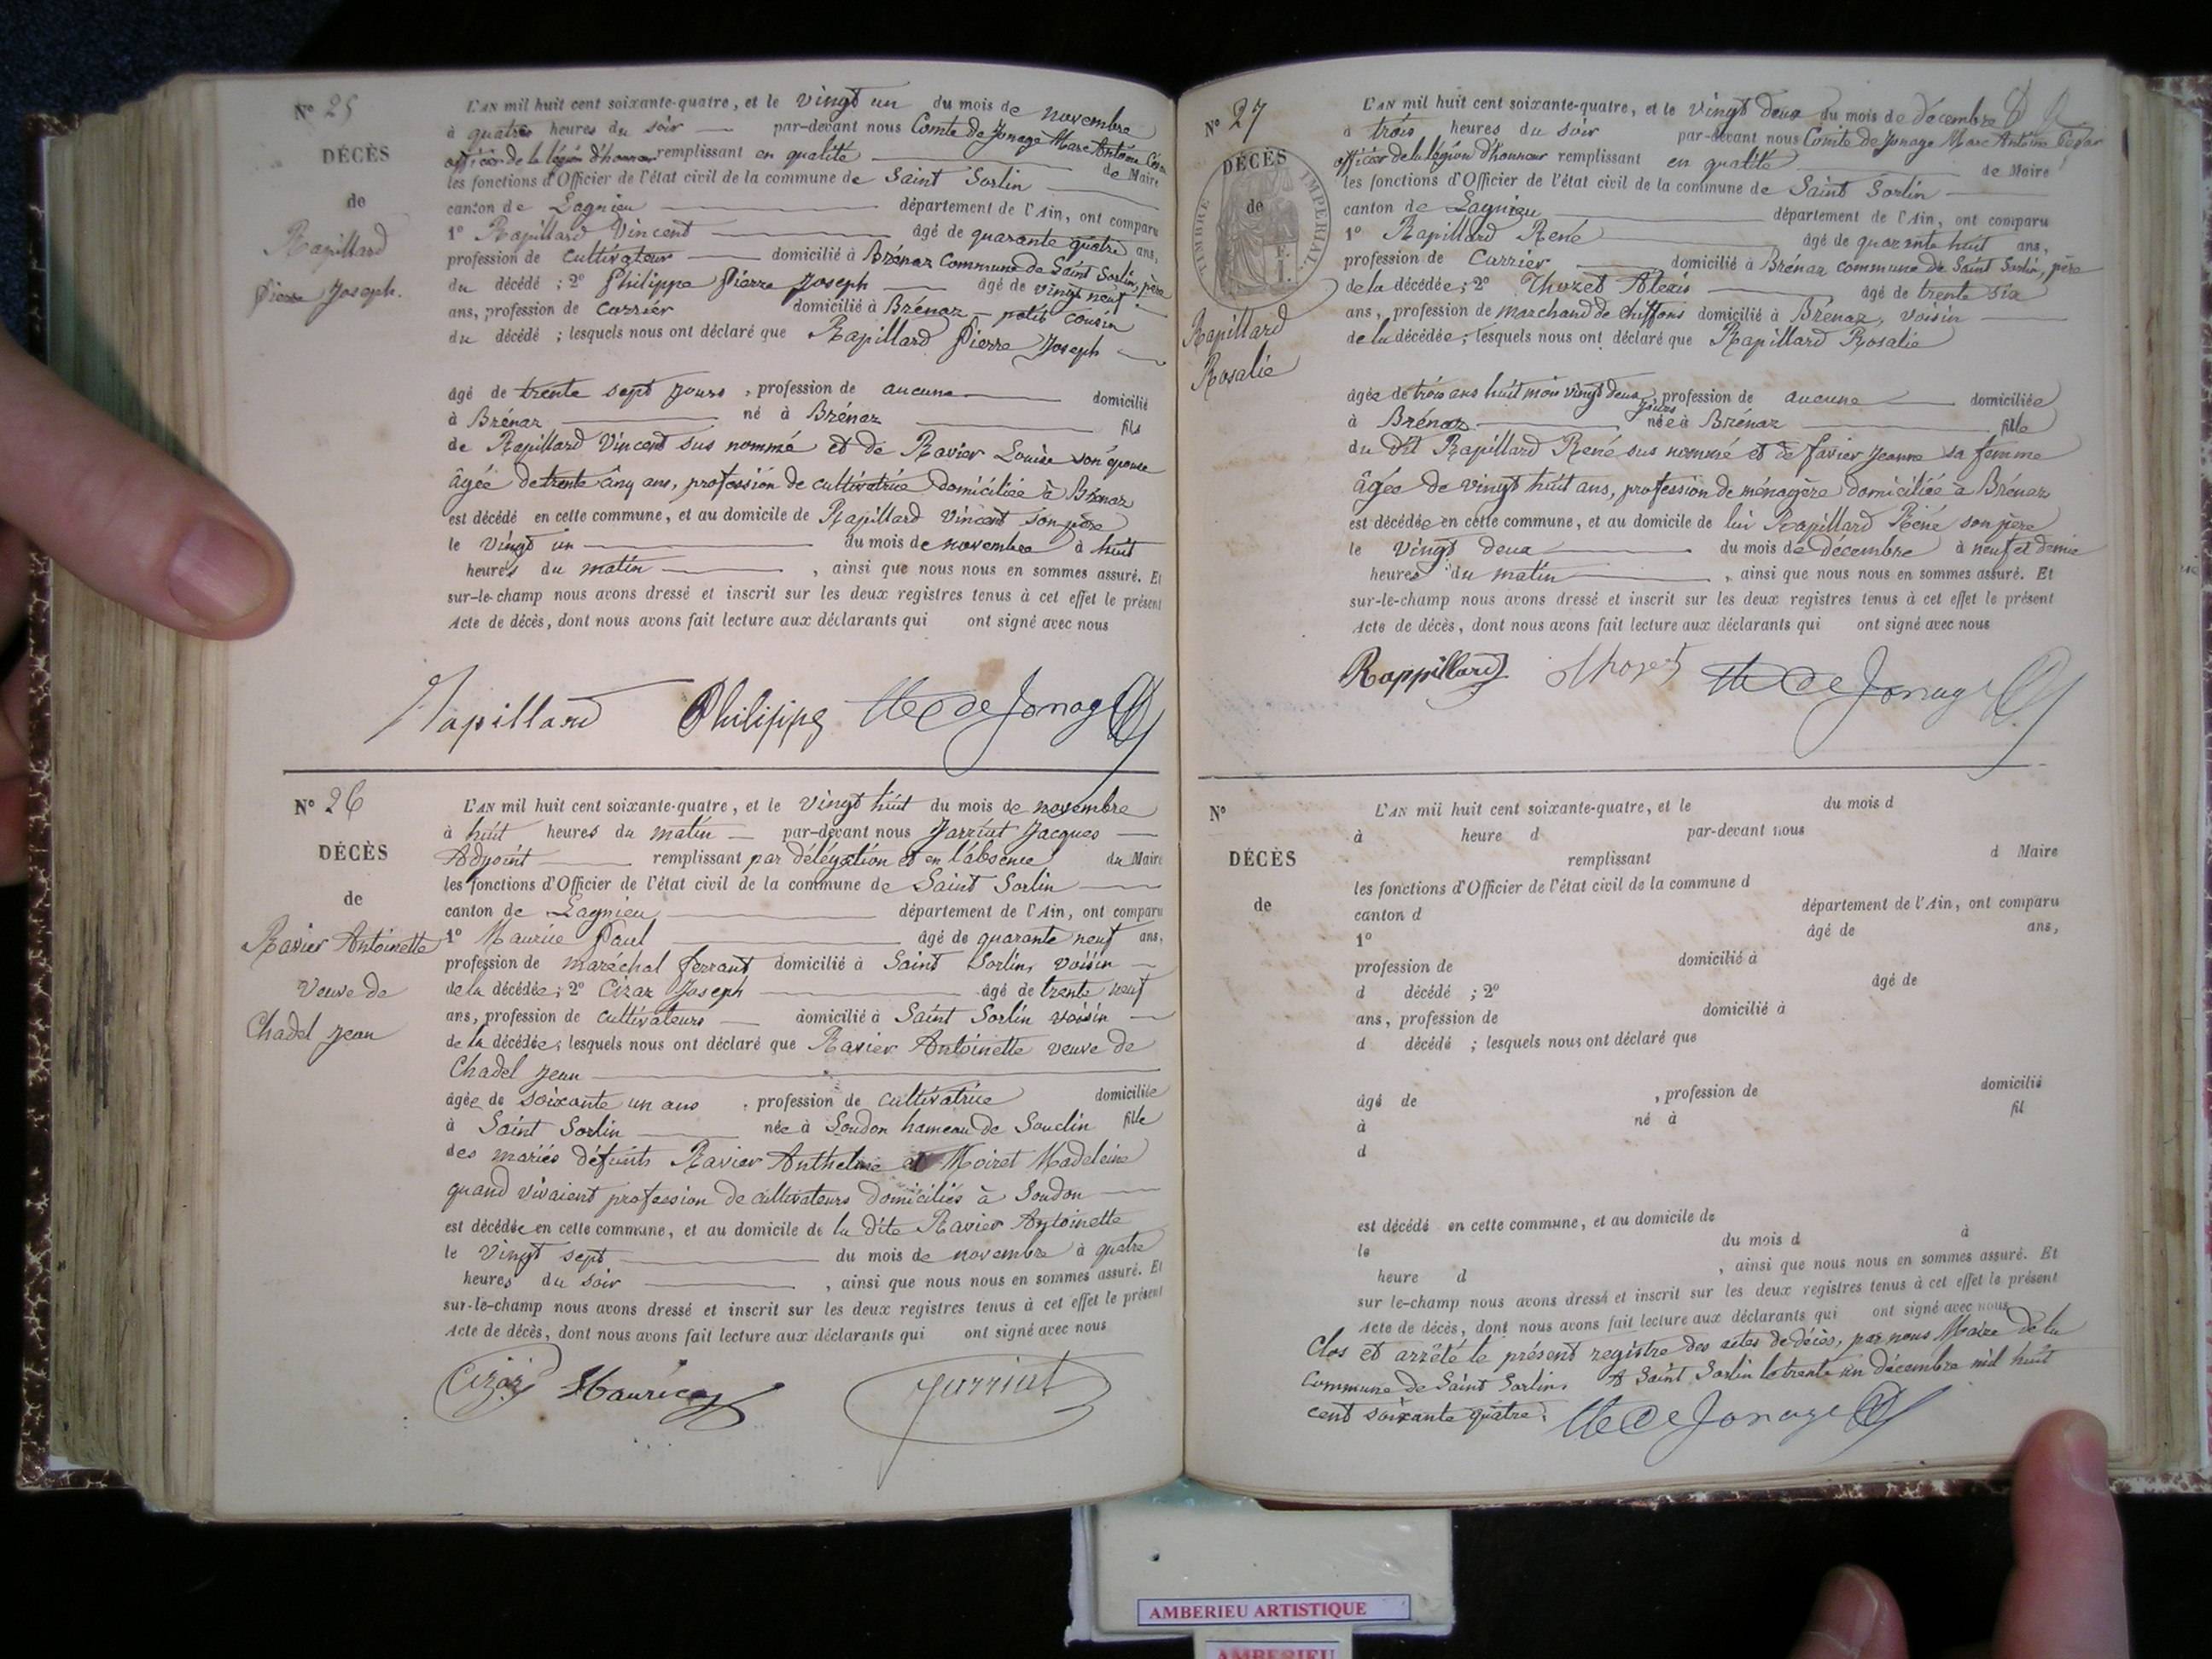 N° 25
DÉCÈS
de
Rapillard
Pierre Joseph.
L'AN mil huit cent soixante-quatre, et le vingt un du mois de novembre
à quatre heures du soir par-devant nous Comte de Jonage Marc Antoine César
officier de la légion d'honneur remplissant en qualité de Maire
les fonctions d'Officier de l'état civil de la commune de Saint Sorlin
canton de Lagnieu département de l'Ain, ont comparu
1° Rapillard Vincent âgé de quarante quatre ans,
profession de cultivateur domicilié à Brénaz Commune de Saint Sorlin, père
du décédé ; 2° Philippe Pierre Joseph âgé de vingt neuf
ans, profession de carrier domicilié à Brénaz petit cousin
du décédé ; lesquels nous ont déclaré que Rapillard Pierre Joseph
âgé de trente sept jours, profession de aucune domicilié
à Brénaz né à Brénaz fils
de Rapillard Vincent sus nommé et de Ravier Louise son épouse
âgée de trente cinq ans, profession de cultivatrice domiciliée à Brénaz
est décédé en cette commune, et au domicile de Rapillard Vincent son père
le vingt un du mois de novembre à huit
heures du matin, ainsi que nous nous en sommes assuré. Et
sur-le-champ nous avons dressé et inscrit sur les deux registres tenus à cet effet le présent
Acte de décès, dont nous avons fait lecture aux déclarants qui ont signé avec nous
Rapillard Philippe Cte de Jonage
N° 26
DÉCÈS
de
Ravier Antoinette
Veuve de
Chadel Jean
L'AN mil huit cent soixante-quatre, et le vingt huit du mois de novembre
à huit heures du matin par-devant nous Jarriat Jacques
Adjoint remplissant par délégation et en l'absence du Maire
les fonctions d'Officier de l'état civil de la commune de Saint Sorlin
canton de Lagnieu département de l'Ain, ont comparu
1° Maurice Paul âgé de quarante neuf ans,
profession de maréchal ferrant domicilié à Saint Sorlin, voisin
de la décédée ; 2° Cizar Joseph âgé de trente neuf
ans, profession de cultivateurs domicilié à Saint Sorlin voisin
de la décédée ; lesquels nous ont déclaré que Ravier Antoinette veuve de
Chadel Jean
âgée de soixante un ans, profession de cultivatrice domiciliée
à Saint Sorlin née à Soudon hameau de Souclin fille
des mariés défunts Ravier Anthelme et Moiret Madeleine
quand vivaient profession de cultivateurs domiciliés à Soudon
est décédée en cette commune, et au domicile de la dite Ravier Antoinette
le vingt sept du mois de novembre à quatre
heures du soir, ainsi que nous nous en sommes assuré. Et
sur-le-champ nous avons dressé et inscrit sur les deux registres tenus à cet effet le présent
Acte de décès, dont nous avons fait lecture aux déclarants qui ont signé avec nous
Cizar Maurice Jarriat
N° 27
DÉCÈS
de
TIMBRE IMPERIAL
Rapillard
Rosalie
L'AN mil huit cent soixante-quatre, et le vingt deux du mois de décembre
à trois heures du soir par-devant nous Comte de Jonage Marc Antoine César
officier de la légion d'honneur remplissant en qualité de Maire
les fonctions d'Officier de l'état civil de la commune de Saint Sorlin
canton de Lagnieu département de l'Ain, ont comparu
1° Rapillard René âgé de quarante huit ans,
profession de Carrier domicilié à Brénaz commune de Saint Sorlin, père
de la décédée ; 2° Thozet Alexis âgé de trente six
ans, profession de marchand de chiffons domicilié à Brénaz, voisin
de la décédée ; lesquels nous ont déclaré que Rapillard Rosalie
âgée de trois ans huit mois vingt deux jours, profession de aucune domiciliée
à Brénaz née à Brénaz fille
du dit Rapillard René sus nommé et de favier Jeanne sa femme
âgée de vingt huit ans, profession de ménagère domiciliée à Brénaz
est décédée en cette commune, et au domicile de lui Rapillard René son père
le vingt deux du mois de décembre à neuf et demie
heures du matin, ainsi que nous nous en sommes assuré. Et
sur-le-champ nous avons dressé et inscrit sur les deux registres tenus à cet effet le présent
Acte de décès, dont nous avons fait lecture aux déclarants qui ont signé avec nous
Rappillard Thozet Cte de Jonage
N°
DÉCÈS
de
L'AN mil huit cent soixante-quatre, et le du mois d
à heure d par-devant nous
remplissant d Maire
les fonctions d'Officier de l'état civil de la commune d
canton d département de l'Ain, ont comparu
1° âgé de ans,
profession de domicilié à
d décédé ; 2° âgé de
ans, profession de domicilié à
d décédé ; lesquels nous ont déclaré que
âgé de , profession de domicilié
à né à fil
d
est décédé en cette commune, et au domicile de
le du mois d à
heure d , ainsi que nous nous en sommes assuré. Et
sur le-champ nous avons dressé et inscrit sur les deux registres tenus à cet effet le présent
Acte de décès, dont nous avons fait lecture aux déclarants qui ont signé avec nous
Clos et arrêté le présent registre des actes de décès, par nous Maire de la
Commune de Saint Sorlin. A Saint Sorlin le trente un décembre mil huit
cent soixante quatre. Cte de Jonage
AMBERIEU ARTISTIQUE
AMBERIEU